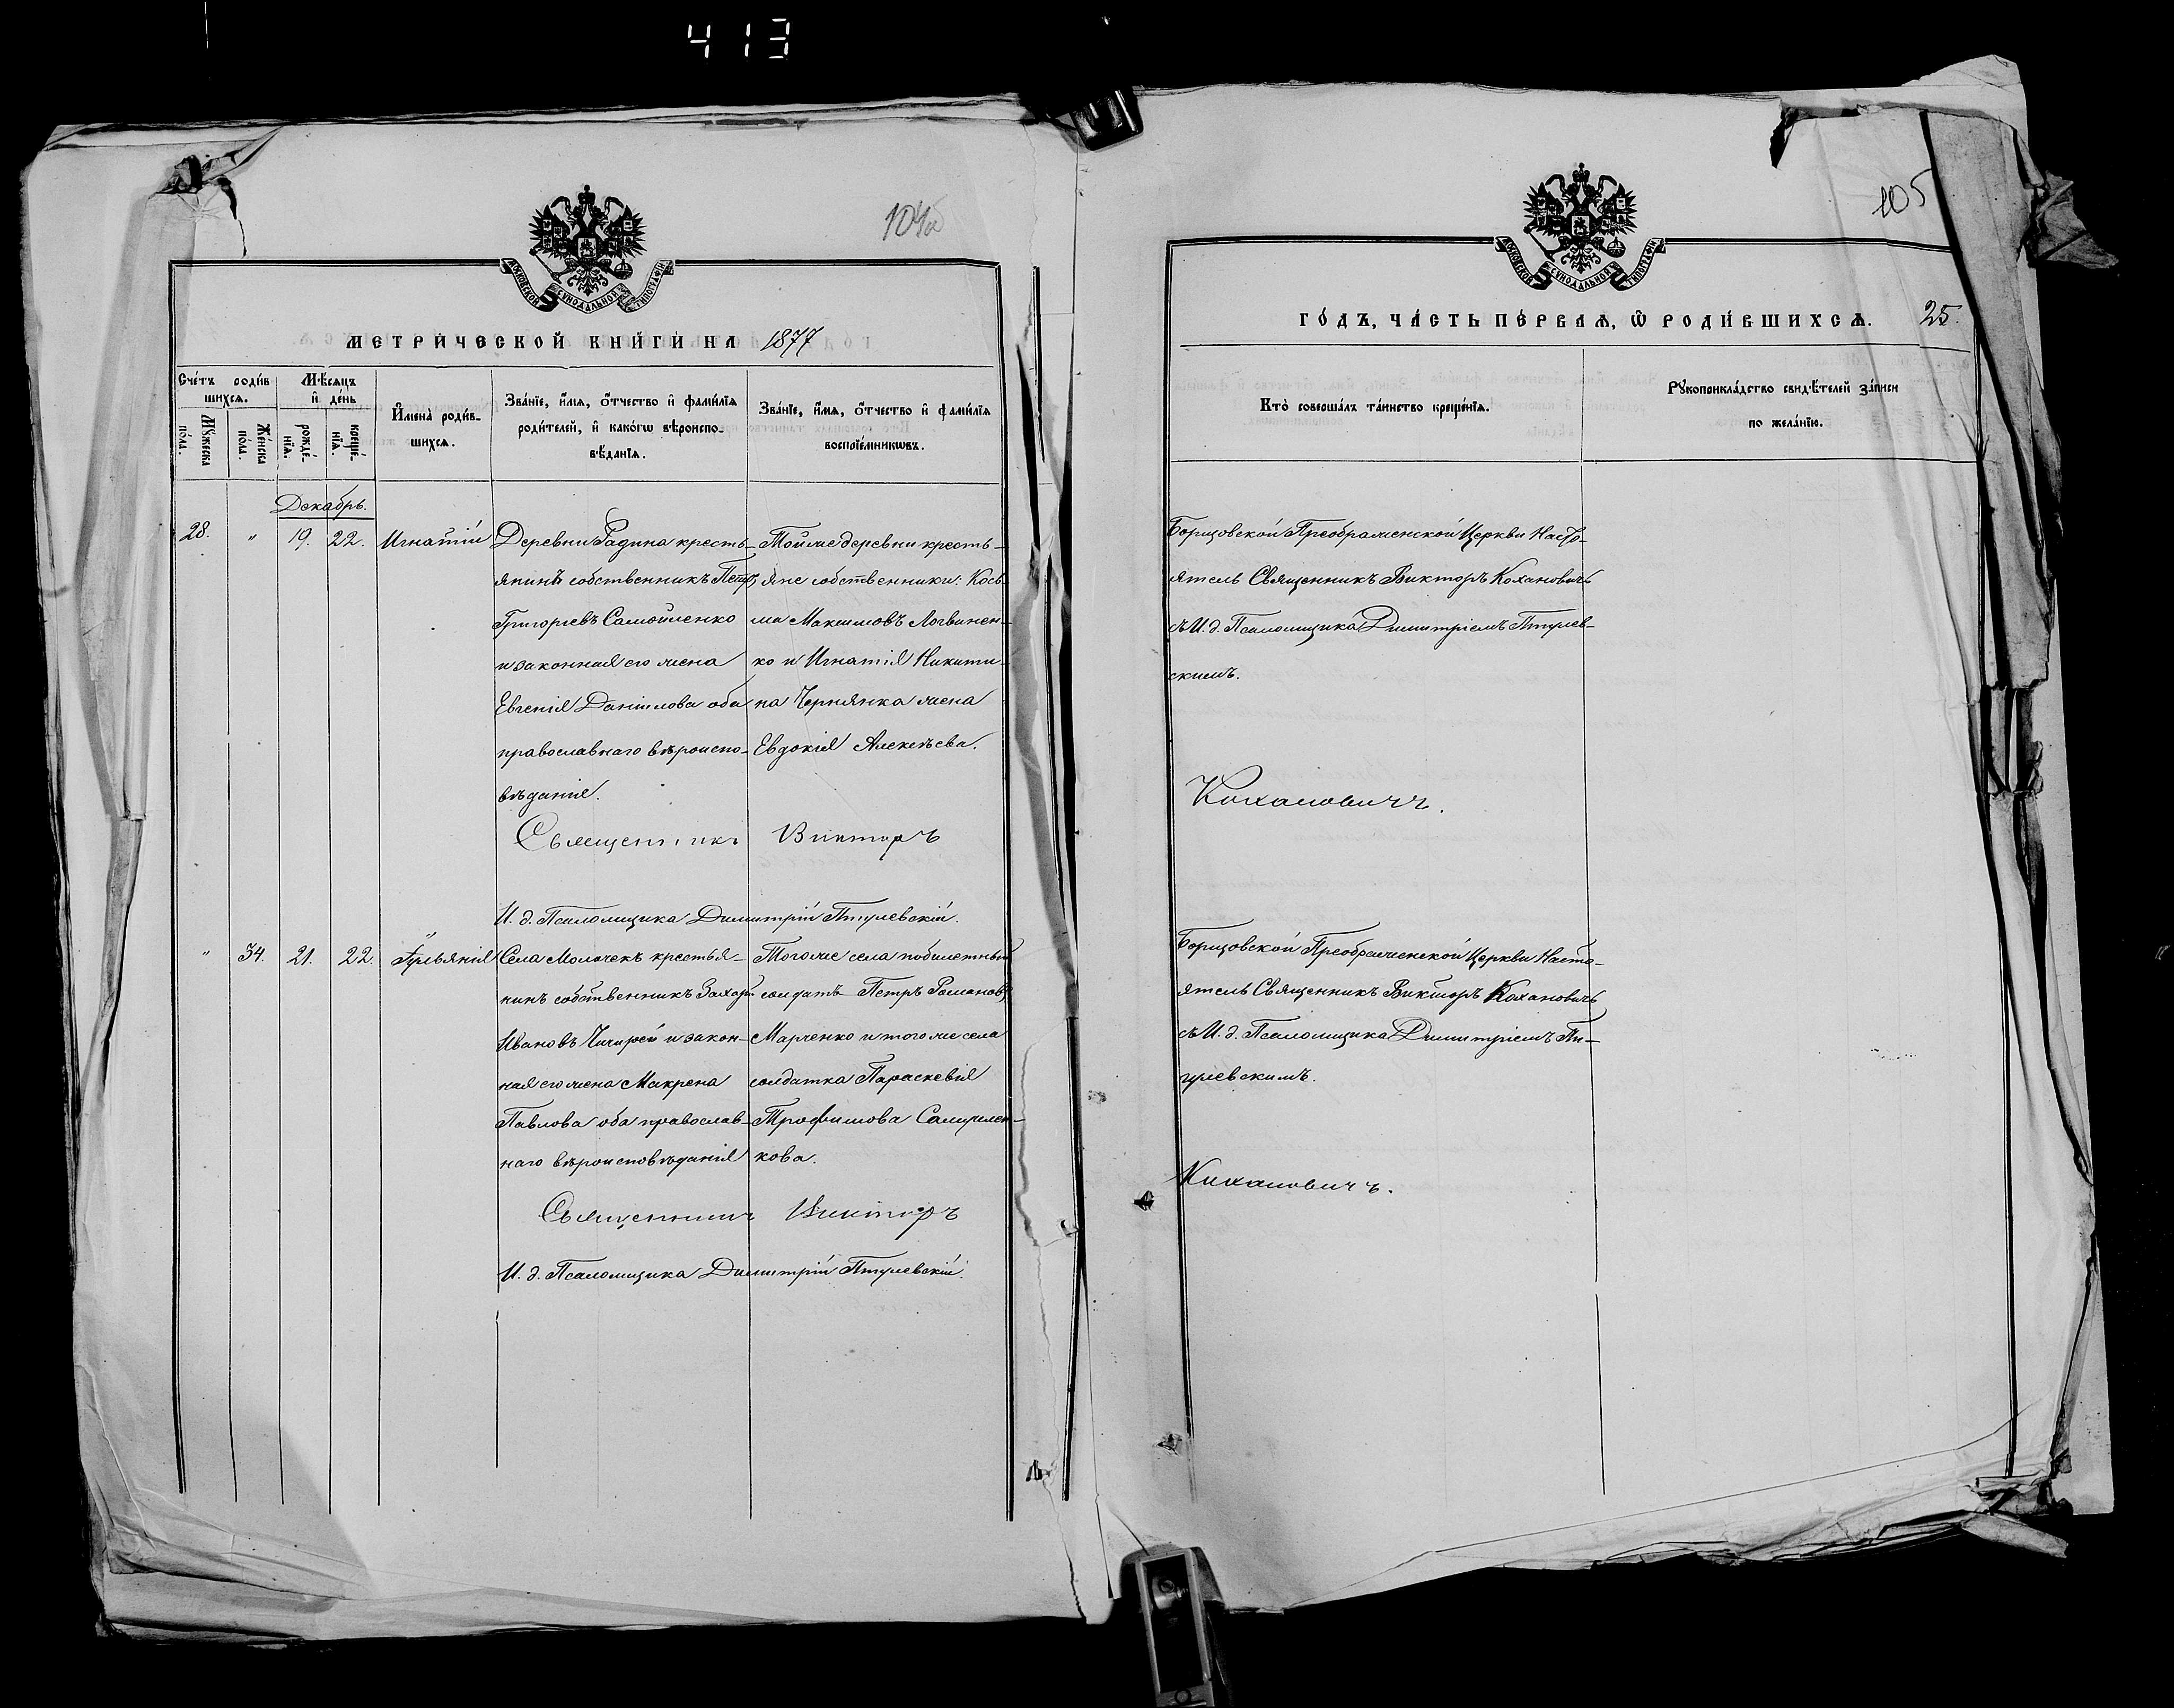 413
104об
МОСКОВСКОЙ СѴНОДАЛЬНОЙ ТИПОГРАФІИ
МЕТРИ́ЧЕСКОЙ КНИ́ГИ НА 1877
Сче́тъ роди́вшихсѧ.
Мꙋ́жеска по́ла.
Же́нска по́ла.
Мѣ́сѧцъ и҆ де́нь
рожде́нїѧ.
креще́нїѧ.
И҆мена̀ роди́вшихсѧ.
Зва́нїе, и҆́мѧ, ѻ҆́тчество и҆ фами́лїѧ
роди́телей, и҆ како́гѡ вѣроиспо-
вѣ́данїѧ.
Зва́нїе, и҆́мѧ, ѻ҆́тчество и҆ фами́лїѧ
воспрїе́мникѡвъ.
Декабрь.
28. " 19. 22. Игнатій
Деревни Радина кресть-
янинъ собственникъ Петръ
Григорьевъ Самойленко
и законная его жена
Евгенія Даніилова оба
православнаго вѣроиспо-
вѣданія.
Той же деревни кресть-
яне собственники: Кось-
ма Максимовъ Логвинен-
ко и Игнатія Никити-
на Чернянка жена
Евдокія Алексѣева.
Священникъ Викторъ
И. д. Псаломщика Димитрій Птушевскій.
" 34. 21. 22. Іульянія
Села Молочекъ крестья-
нинъ собственникъ Захарій
Ивановъ Чичирей и закон-
ная его жена Макрена
Павлова оба православ-
наго вѣроисповѣданія
Того же села побилетный
солдатъ Петръ Романовъ
Марченко и того же села
солдатка Параскевія
Трофимова
кова.
Священникъ Викторъ
И. д. Псаломщика Димитрій Птушевскій.
105
МОСКОВСКОЙ СѴНОДАЛЬНОЙ ТИПОГРАФІИ
ГО́ДЪ, ЧА́СТЬ ПЕ́РВАѦ, Ѽ РОДИ́ВШИХСѦ. 25.
Кто̀ соверша́лъ та́инство креще́нїѧ.
Рꙋкоприкла́дство свидѣ́телей за́писи
по жела́нїю.
Борщовской Преображенской Церкви Насто-
ятель Священникъ Викторъ Кохановичъ
съ И. д. Псаломщика Димитріемъ Птушев-
скимъ.
Кохановичъ.
Борщовской Преображенской Церкви Насто-
ятель Священникъ Викторъ Кохановичъ
съ И. д. Псаломщика Димитріемъ Пт-
ушевскимъ.
Кохановичъ.